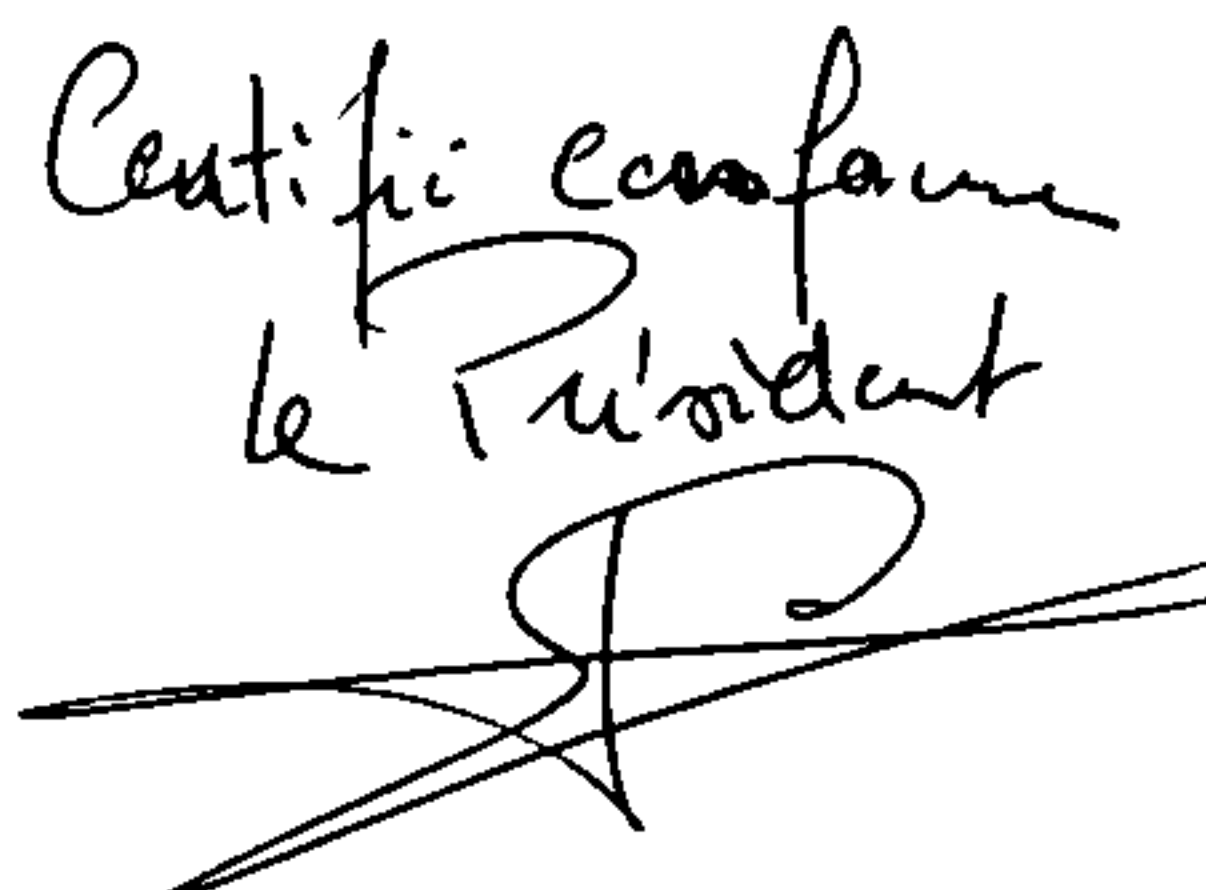 Certifié conforme
le Président